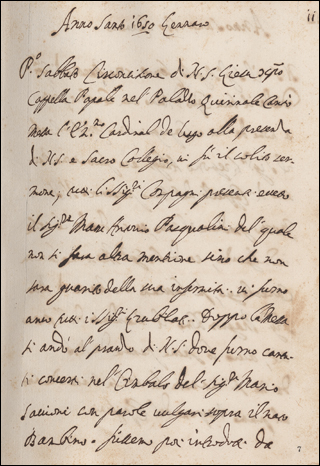 Anno Santo 1650 Gennaro
11
P.º Sabbato Circoncisione di N.S. Giesu
Cappella Papale nel Palazzo Quirinale Cantò
Messa l' Cardinal de Lugo alla presenza
di N.S. e Sacro Collegio, vi fù il solito ser-
mone, li Sig.ri Compagni presenti eccetto
il Sig.re Marc Antonio Pasqualini del quale
non si farà altra mentione sino che non
sarà guarito della sua infermità. vi furno
anco i Sig.ri Doppo la Messa
si andò al pranzo di N.S. dove furno canta-
ti concerti nel Cimbalo del Sig.re Mario
Savioni con parole vulgari sopra il nato
Bambino. poi da